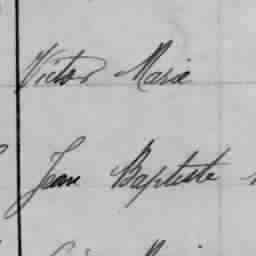 Victor Marie
Jean Baptiste